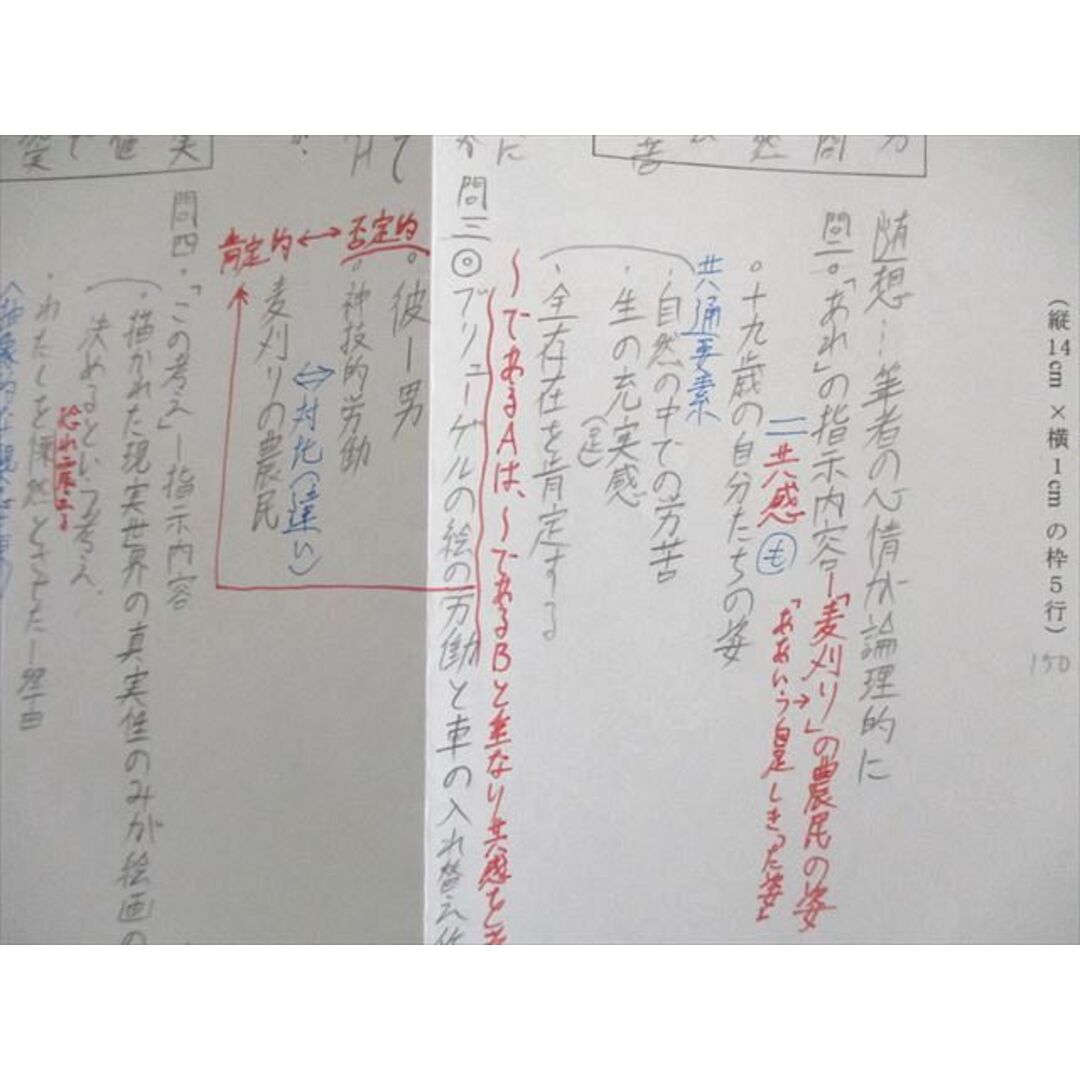 (縦14cm×横1cmの枠5行)
150
随想…筆者の心情が論理的に
問二。「あれ」の指示内容―「麦刈り」の農民の姿
「ああいう自足しきった姿」
=共感も
。十九歳の自分たちの姿
共通要素
・自然の中での労苦
・生の充実感
(足)
・全存在を肯定する
〜であるAは、〜であるBと重なり共感を
問三◎ブリューゲルの絵の労働と車の入れ替え作
否定的
。彼―男
。神技的労働
⇔対比(違い)
肯定的↔
麦刈りの農民
問四・「この考え」―指示内容
・描かれた現実世界の真実性のみが絵画の
決めるという考え、
・わたしを慄然とさせた―理由